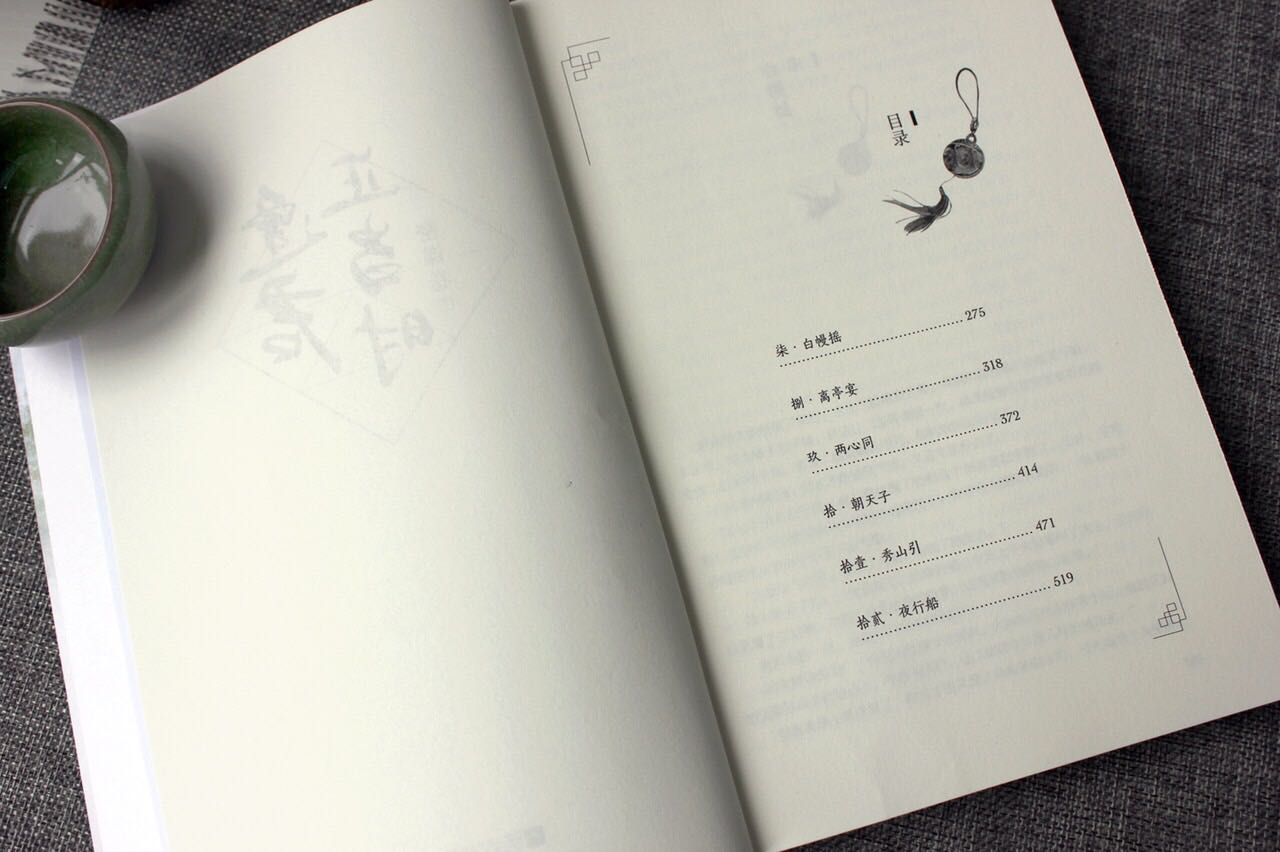 目录
柒·白幔摇 275
捌·离亭宴 318
玖·两心同 372
拾·朝天子 414
拾壹·秀山引 471
拾贰·夜行船 519